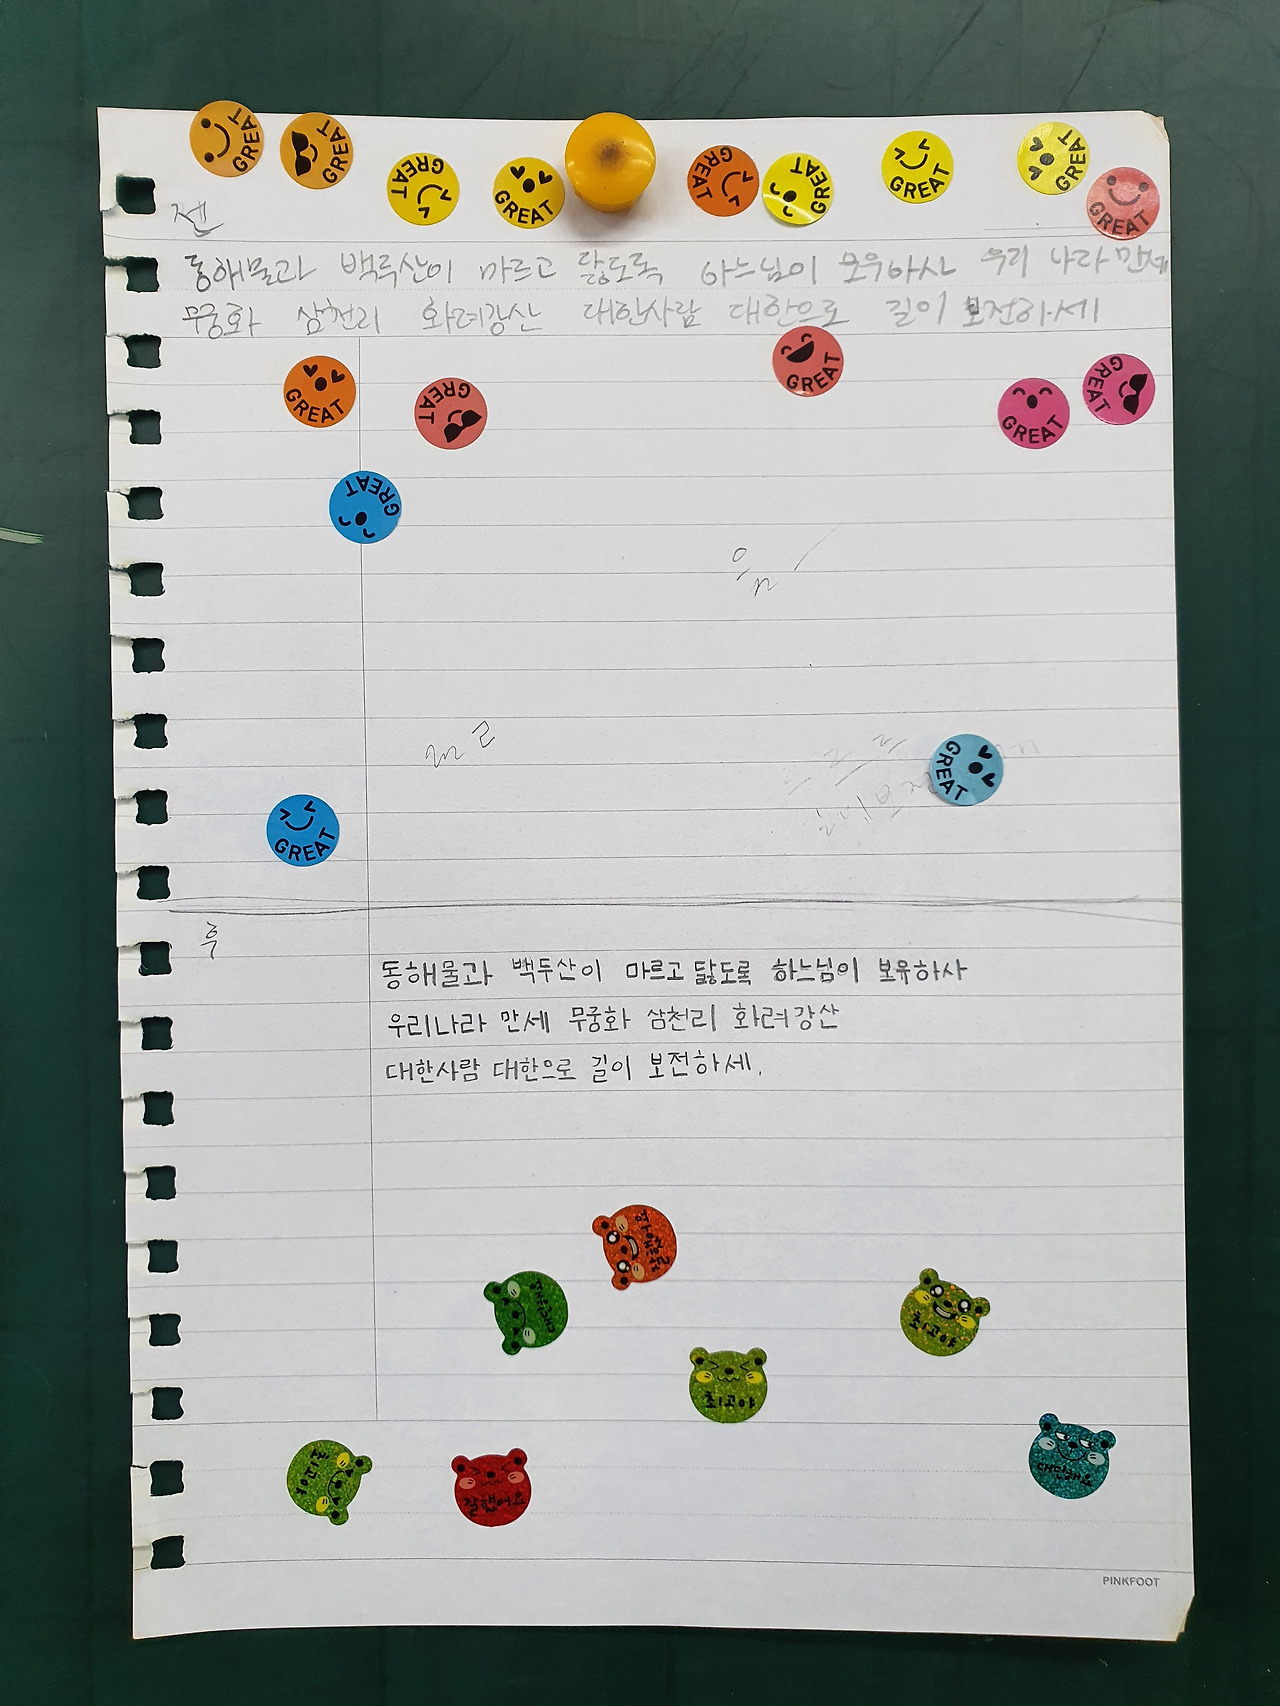 GREAT
GREAT
GREAT
GREAT
GREAT
GREAT
GREAT
GREAT
GREAT
젠
동해물과 백두산이 마르고 닳도록 하느님이 보우하사 우리 나라 만세
무궁화 삼천리 화려강산 대한사람 대한으로 길이 보전하세
GREAT
GREAT
GREAT
GREAT
GREAT
GREAT
GREAT
GREAT
후
동해물과 백두산이 마르고 닳도록 하느님이 보유하사
우리나라 만세 무궁화 삼천리 화려강산
대한사람 대한으로 길이 보전하세.
대단해요
최고야
최고야
최고야
잘했어요
대단해요
PINKFOOT